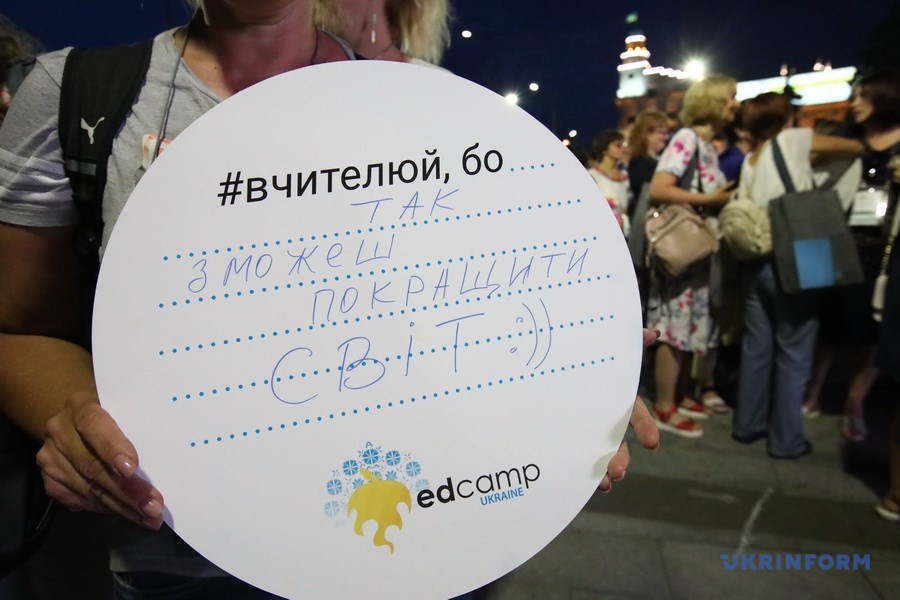 #вчителюй, бо.....
ТАК
зможеш
ПОКРАЩИТИ
СВіТ :))
edcamp
UKRAINE
UKRINFORM